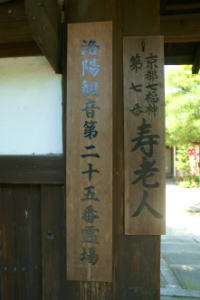 京都七福神
第七番
寿老人
洛陽観音第二十五番霊場